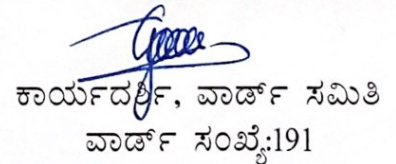 ಕಾರ್ಯದರ್ಶಿ, ವಾರ್ಡ್ ಸಮಿತಿ
ವಾರ್ಡ್ ಸಂಖ್ಯೆ:191